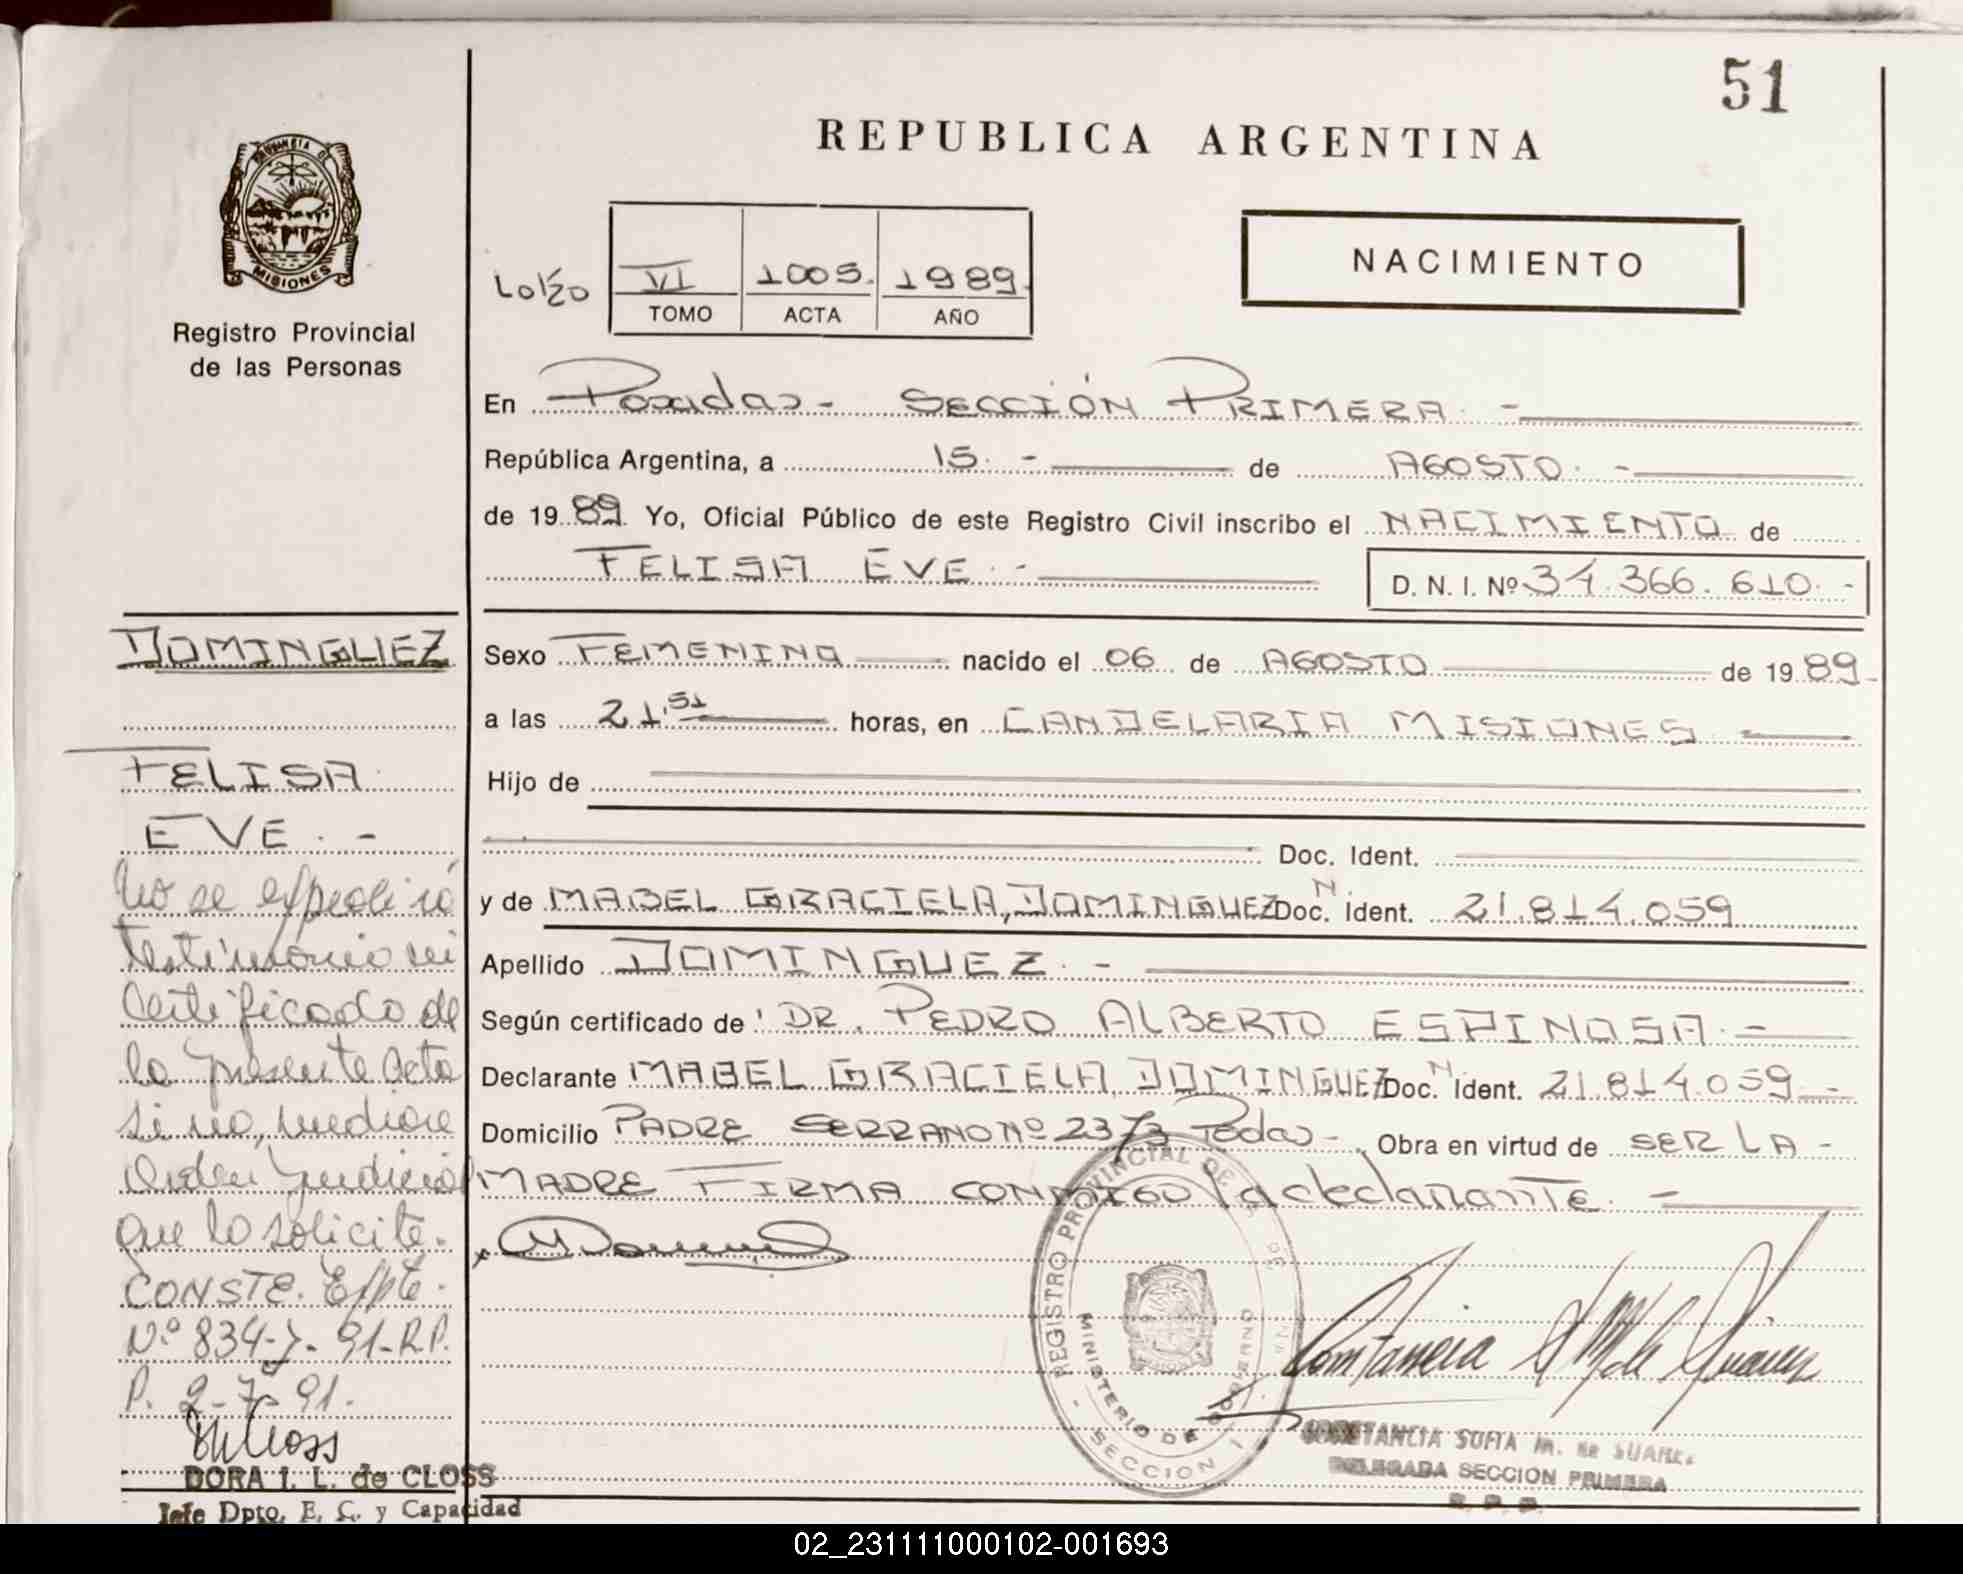 51
REPUBLICA ARGENTINA
PROVINCIA DE
MISIONES
Registro Provincial
de las Personas
VI 1005. 1989.
TOMO ACTA AÑO
NACIMIENTO
En Posadas - SECCIÓN PRIMERA. -
República Argentina, a 15. - de AGOSTO. -
de 1989. Yo, Oficial Público de este Registro Civil inscribo el NACIMIENTO de
FELISA EVE. - D. N. I. Nº 34.366.610. -
DOMINGUEZ
FELISA
EVE. -
No se expedirá
testimonio ni
certificado de
la presente acta
si no, mediare
Orden Judicial
que lo solicite.
CONSTE. Expte.
Nº 834-J-91-R.P.
P. 2-7-91.
DORA I. L. de CLOSS
Jefe Dpto. E. C. y Capacidad
Sexo FEMENINO nacido el 06 de AGOSTO de 1989-
a las 21,51 horas, en CANDELARIA MISIONES
Hijo de
Doc. Ident.
y de MABEL GRACIELA, DOMINGUEZ Doc. N. Ident. 21.814.059
Apellido DOMINGUEZ. -
Según certificado de DR. PEDRO ALBERTO ESPINOSA. -
Declarante MABEL GRACIELA, DOMINGUEZ Doc. N. Ident. 21.814.059 -
Domicilio PADRE SERRANO Nº 2373 Podas -, Obra en virtud de SER LA -
MADRE FIRMA CONMIGO la declarante. -
REGISTRO PROVINCIAL DE
MINISTERIO DE GOBIERNO
- SECCION 1 -
Constancia S M de Suarez
CONSTANCIA SOFIA M. de SUAREZ
DELEGADA SECCION PRIMERA
R. P. P.
02_231111000102-001693